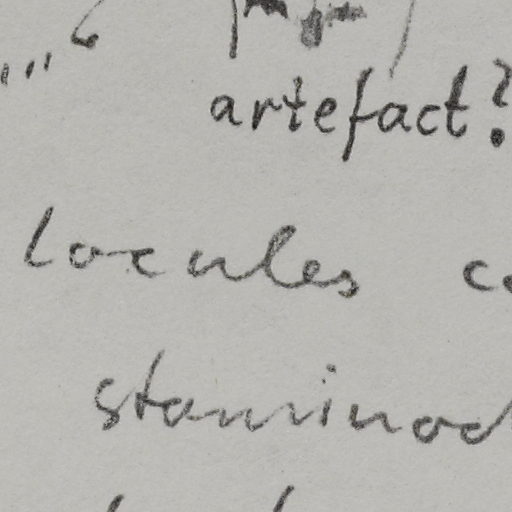 artefact?
locules c
staminod